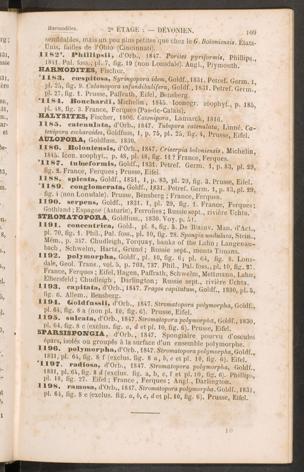 Harmodites. 2e ÉTAGE : — DÉVONIEN. 109
semblables, mais un peu plus petites que chez le G. Boloniensis. États-
Unis, failles de l'Ohio (Cincinnati).
1182*. Phillipsii, d'Orb., 1847. Porites pyriformis, Phillips,
1841. Pal. foss., pl. 7, fig. 19 (non Lonsdale). Angl., Plymouth.
HARMODITES, Fischer.
*1183. cæspitosa, Syringopora idem, Goldf., 1831. Petref. Germ. 1,
pl. 25, fig. 9. Calamopora infundibulifera, Goldf., 1831. Petref. Germ.,
pl. 27, fig. 1. Prusse, Paffrath, Eifel, Bensberg.
*1184. Bouchardi, Michelin, 1845. Iconogr. zoophyl., p. 185,
pl. 48, fig. 3. France, Ferques (Pas-de-Calais).
HALYSITES, Fischer, 1806. Catenipora, Lamarck, 1816.
1185. catenulata, d'Orb., 1847. Tubipora catenulata, Linné. Ca-
tenipora escharoides, Goldfuss, 1, p. 75, pl. 25, fig. 4. Prusse, Eifel.
AULOPORA, Goldfuss, 1830.
*1186. Boloniensis, d'Orb., 1847. Criserpia boloniensis, Michelin,
1845. Icon. zooph., p. 48, pl. 48, fig. 11? France, Ferques.
*1187. tubæformis, Goldf., 1831. Petref. Germ., 1, p. 83, pl. 29,
fig. 2. France, Ferques; Prusse, Eifel.
1188. spicata, Goldf., 1831, 1, p. 83, pl. 29, fig. 3. Prusse, Eifel.
*1189. conglomerata, Goldf., 1831. Petref. Germ. 1, p. 83, pl. 29,
fig. 4 (non Lonsdale). Prusse, Bensberg; France, Ferques.
1190. serpens, Goldf., 1831, 1, pl. 29, fig. 1. France, Ferques;
Gothland; Espagne (Asturie), Ferroñes; Russie sept., rivière Uchta.
STROMATOPORA, Goldfuss, 1830. Voy. p. 51.
1191. concentrica, Gold., pl. 8, fig. 5. De Blainv. Man. d'Act.,
pl. 70, fig. 1. Phil., Pal. foss., pl. 10, fig. 28. Spongia undulata, Stein.,
Mém., p. 347. Chudleigh, Torquay, banks of the Lahn; Langenau-
bach, Schwelm, Hartz, Grund; Russie sept., monts Timans.
1192. polymorpha, Goldf., pl. 10, fig. 6; pl. 64, fig. 8. Lons-
dale, Geol. Trans., vol. 5, p. 703, 737. Phill., Pal. foss., pl. 10, fig. 27.
France, Ferques; Eifel, Hagen, Paffrath, Schwelm, Mettmann, Lahn,
Elbersfeld; Chudleigh, Darlington; Russie sept., rivière Uchta.
1193. capitata, d'Orb., 1847. Tragos capitatum, Goldf., 1830, pl. 5,
fig. 6. Allem., Bensberg.
1194. Goldfussii, d'Orb., 1847. Stromatopora polymorpha, Goldf.,
pl. 64, fig. 8 a (non pl. 10, fig. 6). Prusse, Eifel.
1195. sulcata, d'Orb., 1847. Stromatopora polymorpha, Goldf., 1830,
pl. 64, fig. 8 c (exclus. fig. a, d et pl. 10, fig. 6). Prusse, Eifel.
SPARSISPONGIA, d'Orb., 1847. Spongiaire pourvu d'oscules
épars, isolés ou groupés à la surface d'un ensemble polymorphe.
1196. polymorpha, d'Orb., 1847. Stromatopora polymorpha, Goldf.,
1831, pl. 64, fig. 8 f (exclus. fig. 8 a, b, c et pl. 10, fig. 6). Eifel.
*1197. radiosa, d'Orb., 1847. Stromatopora polymorpha, Goldf.,
1831, pl. 64, fig. 8 d (exclus. fig. a, b, c, f et pl. 10, fig. 6). Phillips,
pl. 10, fig. 27. Eifel; France, Ferques; Angl., Darlington.
1198. ramosa, d'Orb., 1847. Stromatopora polymorpha, Goldf., 1831,
pl. 64, fig. 8 e (exclus. fig. a, b, c, d et pl. 10, fig. 6). Prusse, Eifel.
10